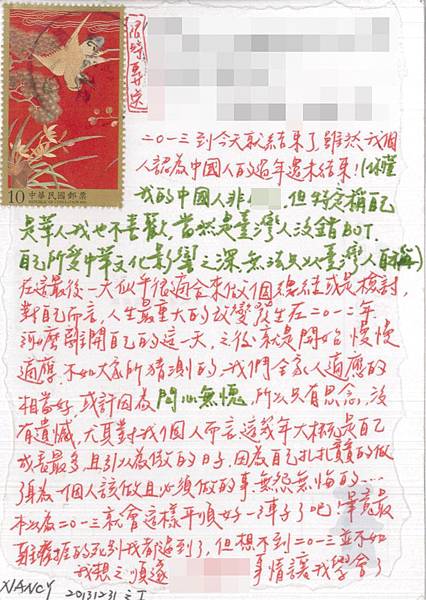 限時專送
10 中華民國郵票
REPUBLIC OF CHINA
二〇一三到今天就結束了,雖然我個
人認為中國人的過年還未結束!(休
我的中國人非 ,但特定稱自己
是華人我也不喜歡,當然是臺灣人沒錯BUT.
自己所受中華文化影響之深,無法只以臺灣人自稱)
在這最後一天似乎很適合來做個總結或是檢討,
對自己而言,人生最重大的改變發生在二〇一二年,
離開自己的這一天,之後就是開始慢慢
適應,不如大家所猜測的,我們全家人適應的
相當好,或許因為問心無愧,所以只有思念,沒
有遺憾,尤其對我個人而言,這幾年大概是自己
成長最多且引以為傲的日子,因為自己扎扎實實的做
了身為一個人該做且必須做的事,無怨無悔的...
本以為二〇一三就會這樣平順好一陣子了吧!畢竟最
難 的死別我都遇到了,但想不到二〇一三並不如
我想之順遂 事情讓我學會了
NANCY 20131231之1